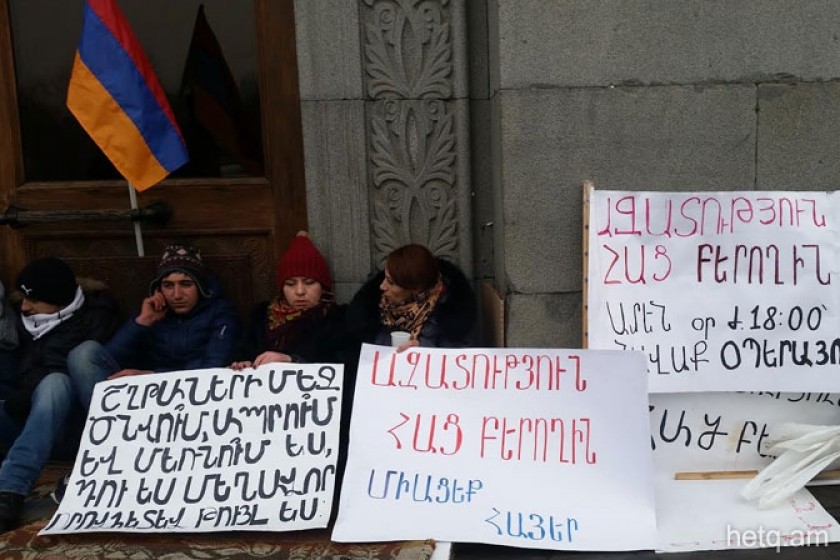 ՇՂԹԱՆԵՐԻ ՄԵՋ
ԾՆՎՈՒՄ, ԱՊՐՈՒՄ
ԵՎ ՄԵՌՆՈՒՄ ԵՍ,
ԴՈՒ ԵՍ ՄԵՂԱՎՈՐ
ՈՐՈՎՀԵՏԵՎ ԹՈՒՅԼ ԵՍ.
ԱԶԱՏՈՒԹՅՈՒՆ
ՀԱՑ ԲԵՐՈՂԻՆ
ՄԻԱՑԵՔ
ՀԱՅԵՐ
ԱԶԱՏՈՒԹՅՈՒՆ
ՀԱՑ ԲԵՐՈՂԻՆ
ԱՄԵՆ ՕՐ Ժ 18:00՝
ՀԱՎԱՔ ՕՊԵՐԱՅՈ
ՀԱՑ ԲԵ
hetq.am